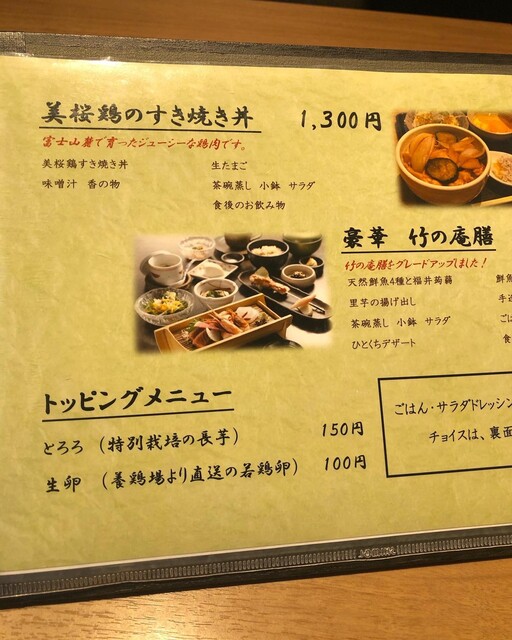 美桜鶏のすき焼き丼 1,300円
富士山麓で育ったジューシーな鶏肉です。
美桜鶏すき焼き丼 生たまご
味噌汁 香の物 茶碗蒸し 小鉢 サラダ
食後のお飲み物
豪華 竹の庵膳
竹の庵膳をグレードアップしました!
天然鮮魚4種と福井蒟蒻 鮮
里芋の揚げ出し 手
茶碗蒸し 小鉢 サラダ ごは
ひとくちデザート 食
トッピングメニュー
とろろ (特別栽培の長芋) 150円
生卵 (養鶏場より直送の若鶏卵) 100円
ごはん・サラダドレッシン
チョイスは、裏面